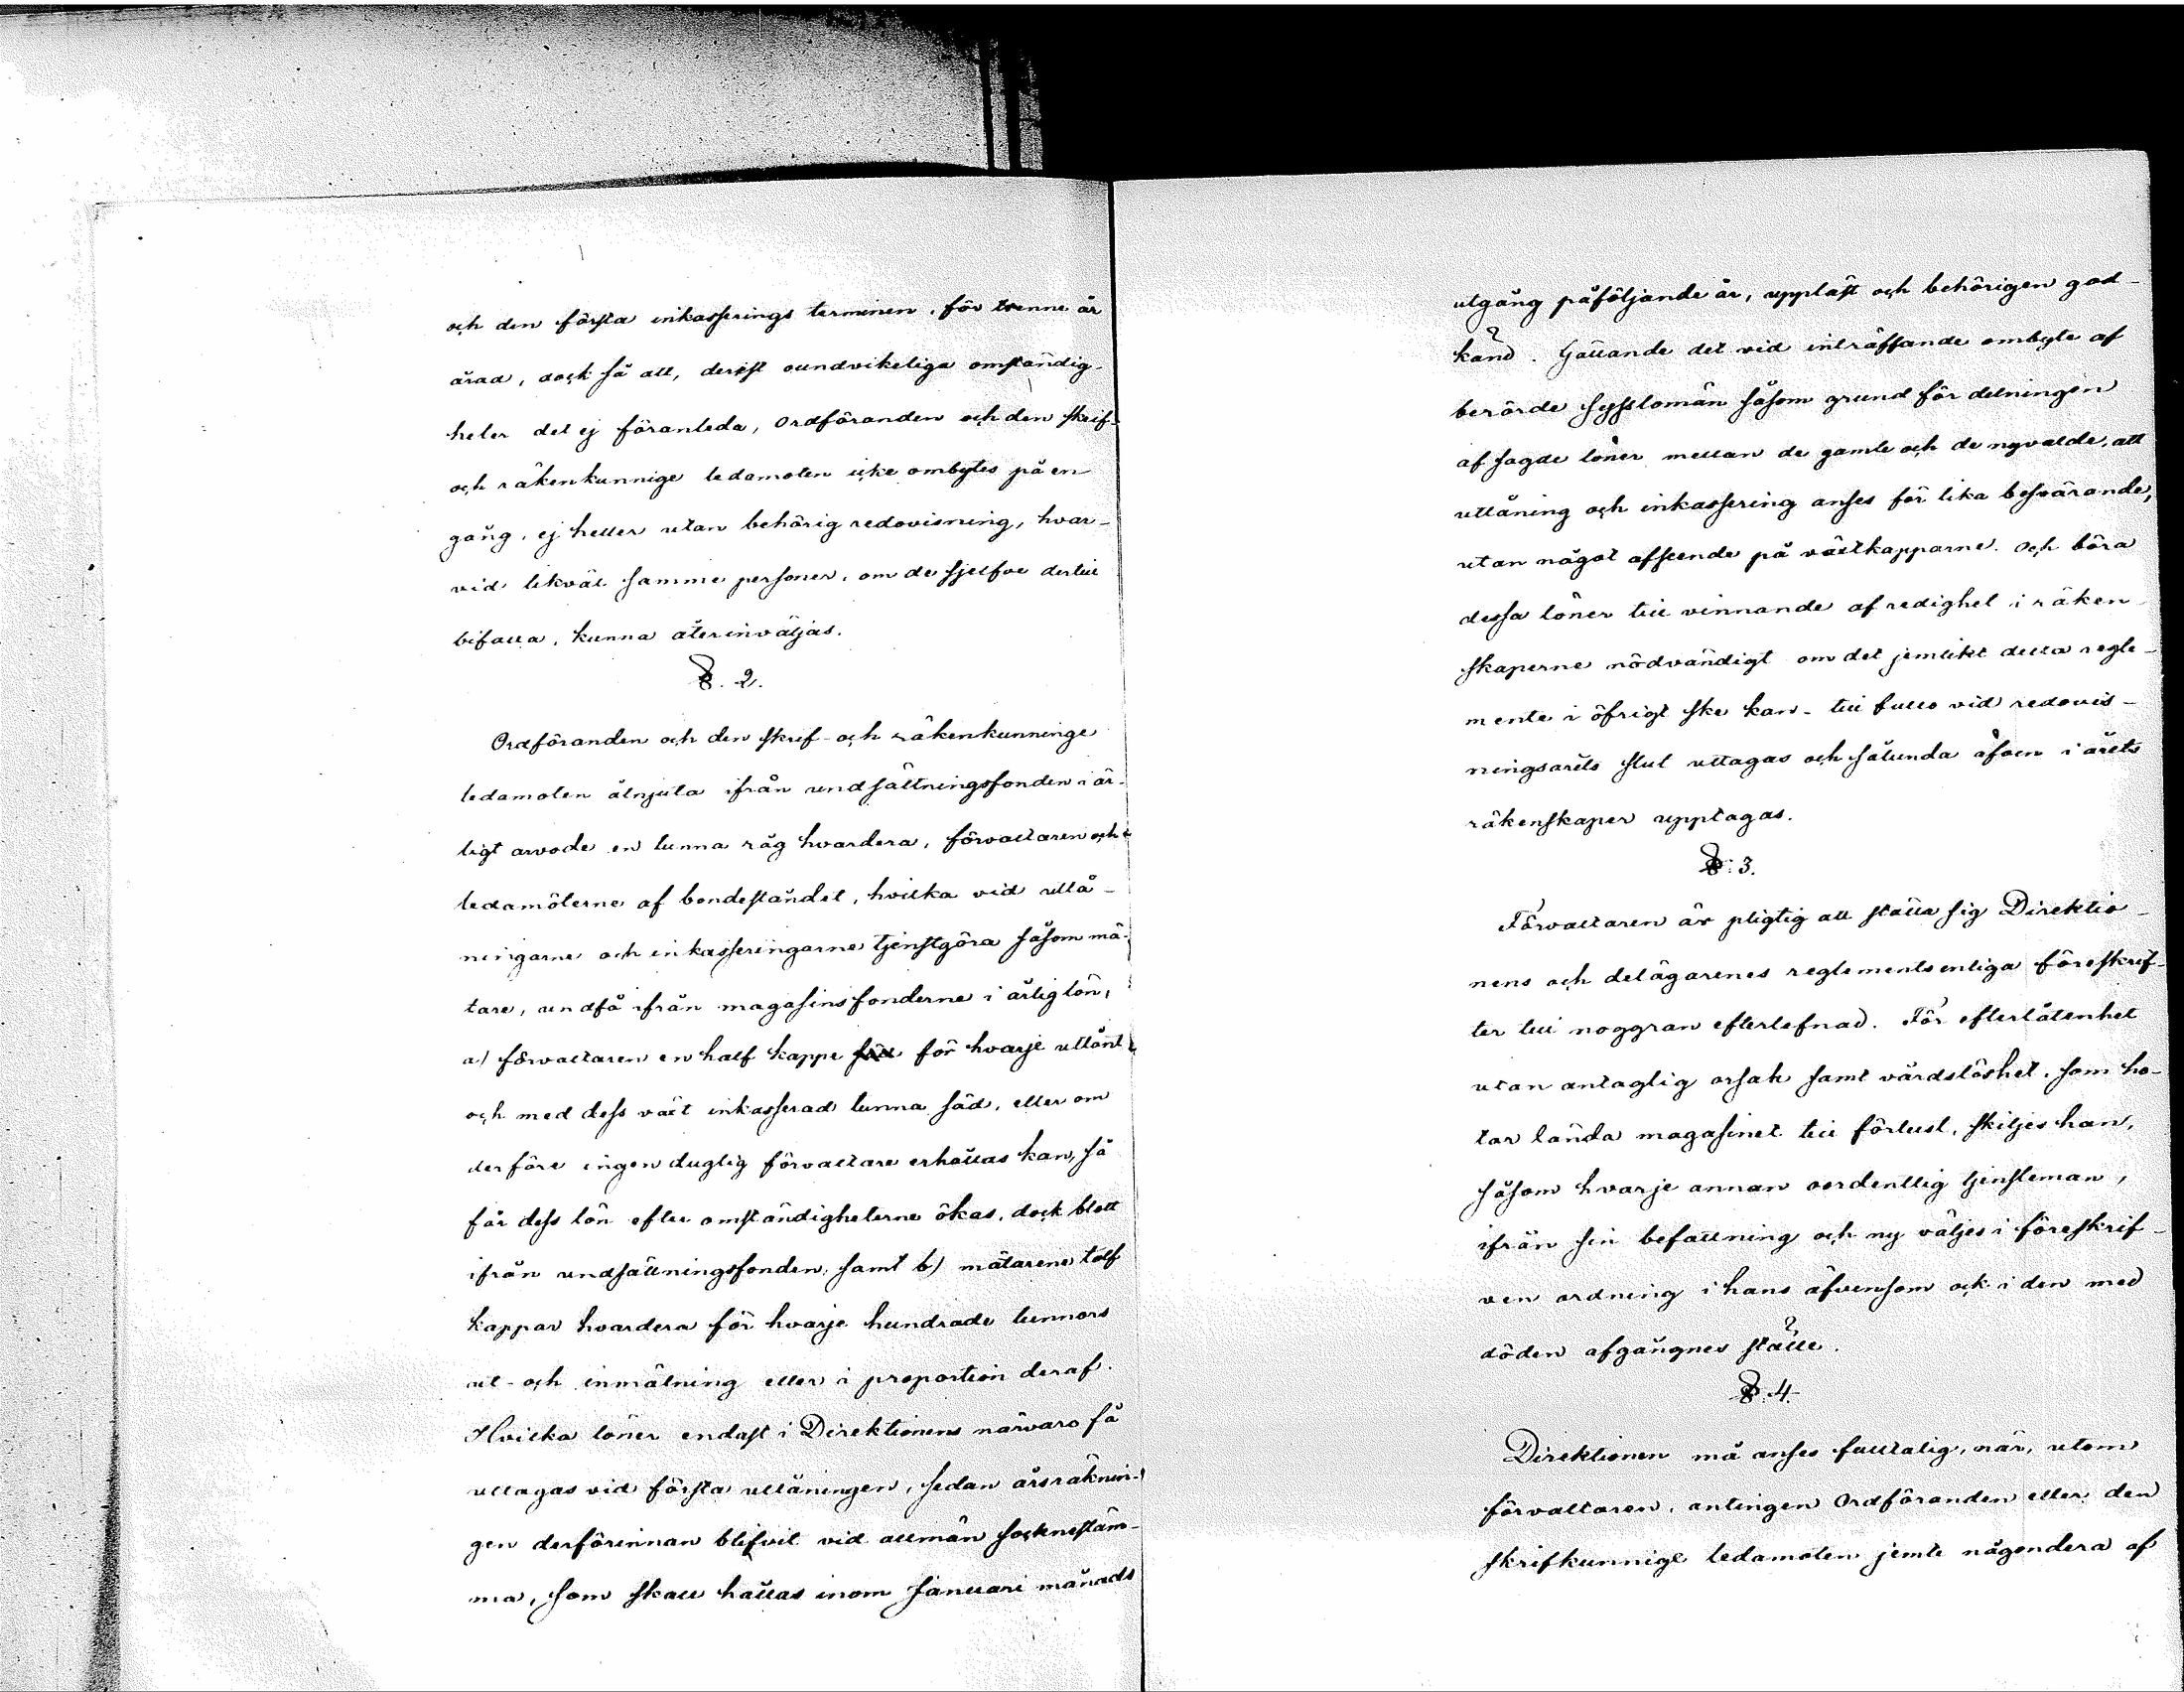 och den första inkasserings terminen, för trenne år
årad, dock så att, derest oundvikeliga omständig-
heter det ej föranleda, Ordföranden och den skrif-
och räkenkunnige ledamoten icke ombytes på en
gång, ej heller utan behörig redovisning, hvar-
vid likväl samme personer, om de sjelfve dertill
bifalla, kunna återinväljas.
§. 2.
Ordföranden och den skrif- och räkenkunninge
ledamoten åtnjuta ifrån undsättningsfonden i år-
ligt arvode en tunna råg hvardera, förvaltaren och
ledamöterne af bondeståndet, hvilka vid utlå-
ningarne och inkasseringarne tjenstgöra såsom mä-
tare, undfå ifrån magasinsfonderne i årlig lön,
a) förvaltaren en half kappe för hvarje utlånt
och med dess växt inkasserad tunna säd, eller om
derföre ingen duglig förvaltare erhållas kan, så
får dess lön efter omständigheterne ökas, dock blott
ifrån undsättningsfonden, samt b) mätarene tolf
kappar hvardera för hvarje hundrade tunnors
ut- och inmätning eller i proportion deraf.
Hvilka löner endast i Direktionens närvaro få
uttagas vid första utlåningen, sedan årsräknin-
gen derförinnan blifvit vid allmän socknestäm-
ma, som skall hållas inom Januari månads
utgång påföljande år, uppläst och behörigen god-
känd. Gällande det vid inträffande ombyte af
berörde sysslomän såsom grund för delningen
af sagde löner mellan de gamle och de nyvalde, att
utlåning och inkassering anses för lika besvärande,
utan något afseende på växtkapparne. Och böra
dessa löner till vinnande af redighet i räken-
skaperne nödvändigt om det jemlikt detta regle-
mente i öfrigt ske kan - till fullo vid redovis-
ningsårets slut uttagas och sålunda äfven i årets
räkenskaper upptagas.
§: 3.
Förvaltaren är pligtig att ställa sig Direktio-
nens och delägarenes reglementsenliga föreskrif-
ter till noggran efterlefnad. För efterlåtenhet
utan antaglig orsak samt vårdslöshet, som ho-
tar lända magasinet till förlust, skiljes han,
såsom hvarje annan oordentlig tjensteman,
ifrån sin befattning och ny väljes i föreskrif-
ven ordning i hans äfvensom ock i den med
döden afgångnes ställe.
§. 4.
Direktionen må anses fulltalig, när, utom
förvaltaren, antingen Ordföranden eller den
skrifkunnige ledamoten jemte någondera af